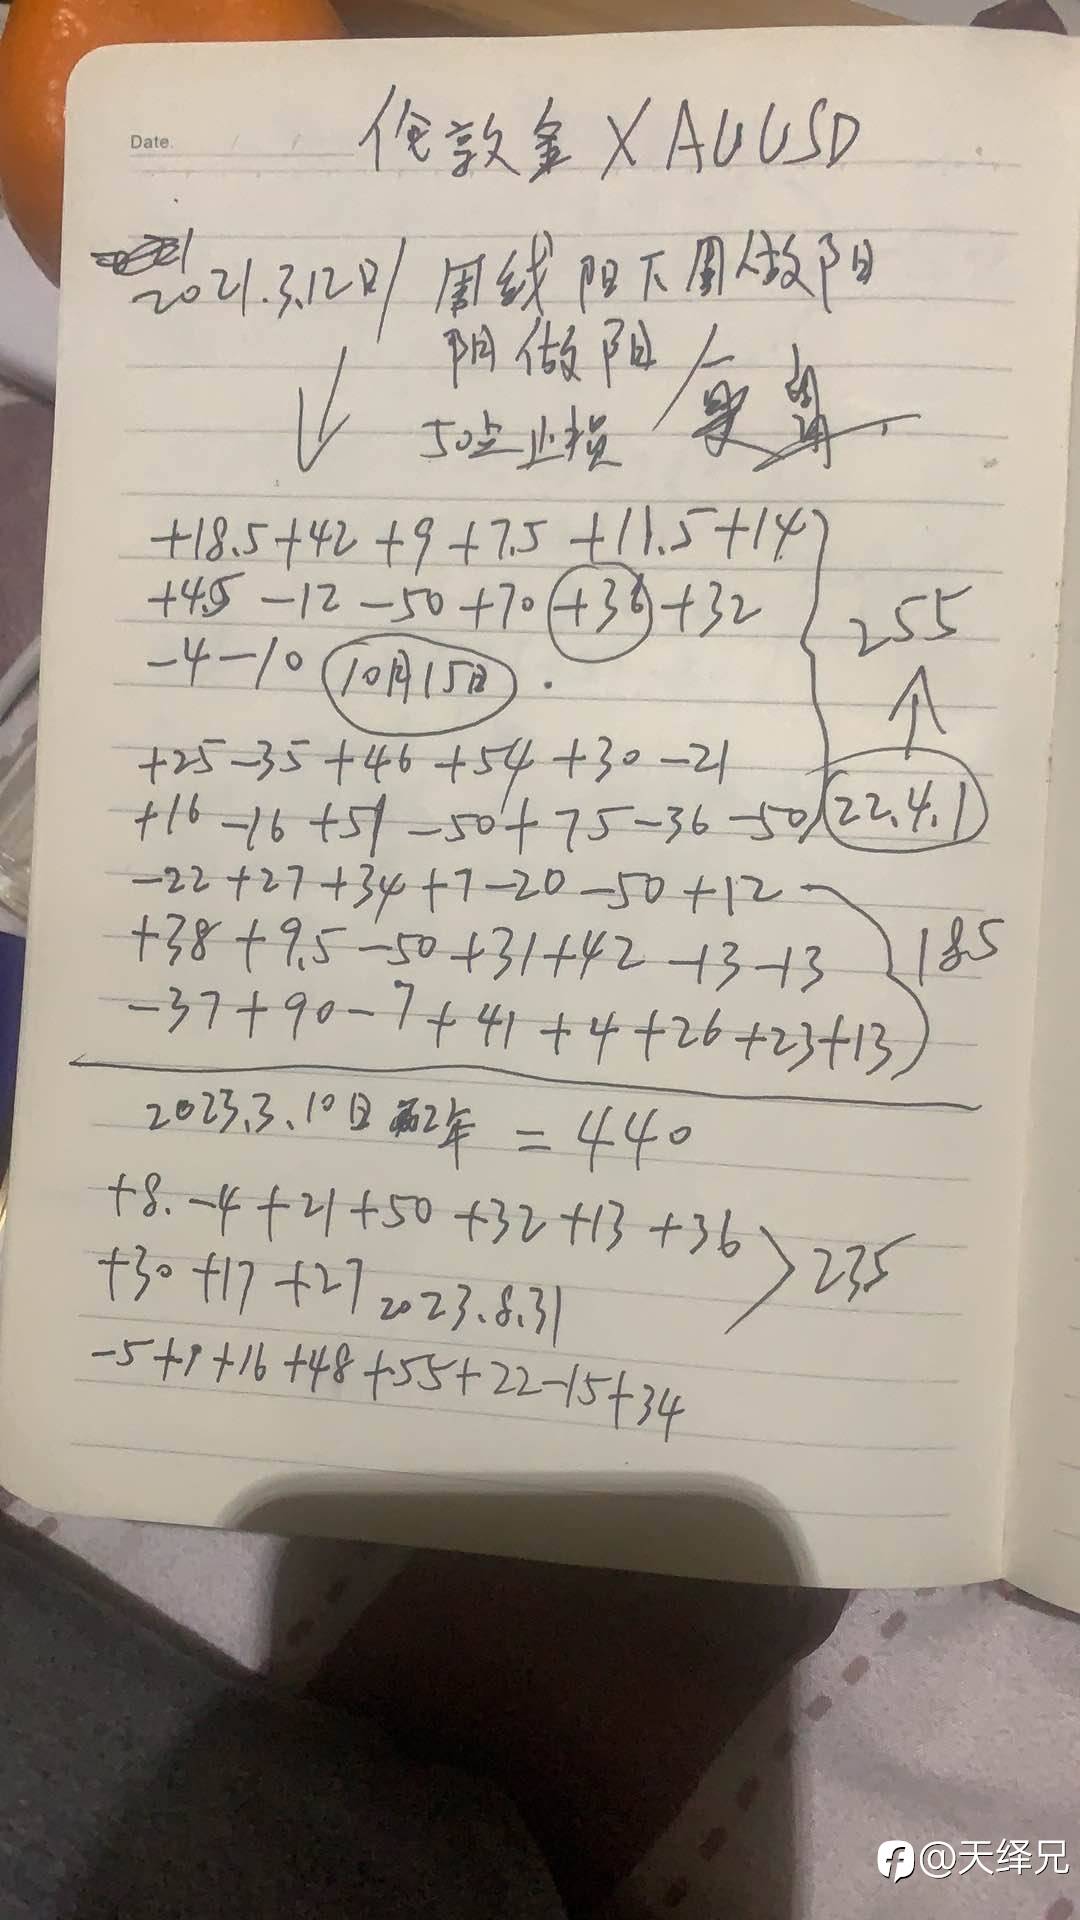 Date.
伦敦金 XAUUSD
2021.3.12日/ 周线 阳下周做阳
阴做阳
50点止损
+18.5+42+9+7.5+11.5+14
+4.5-12-50+70+36+32
255
-4-10 10月15日.
+25-35+46+54+30-21
+16-16+51-50+75-36-50 22.4.1
-22+27+34+7-20-50+12
+38+9.5-50+31+42-13-13 185
-37+90-7+41+4+26+23+13
2023.3.10日 2年 =440
+8.-4+21+50+32+13+36
+30+17+27 2023.8.31 235
-5+9+16+48+55+22-15+34
@天绎兄